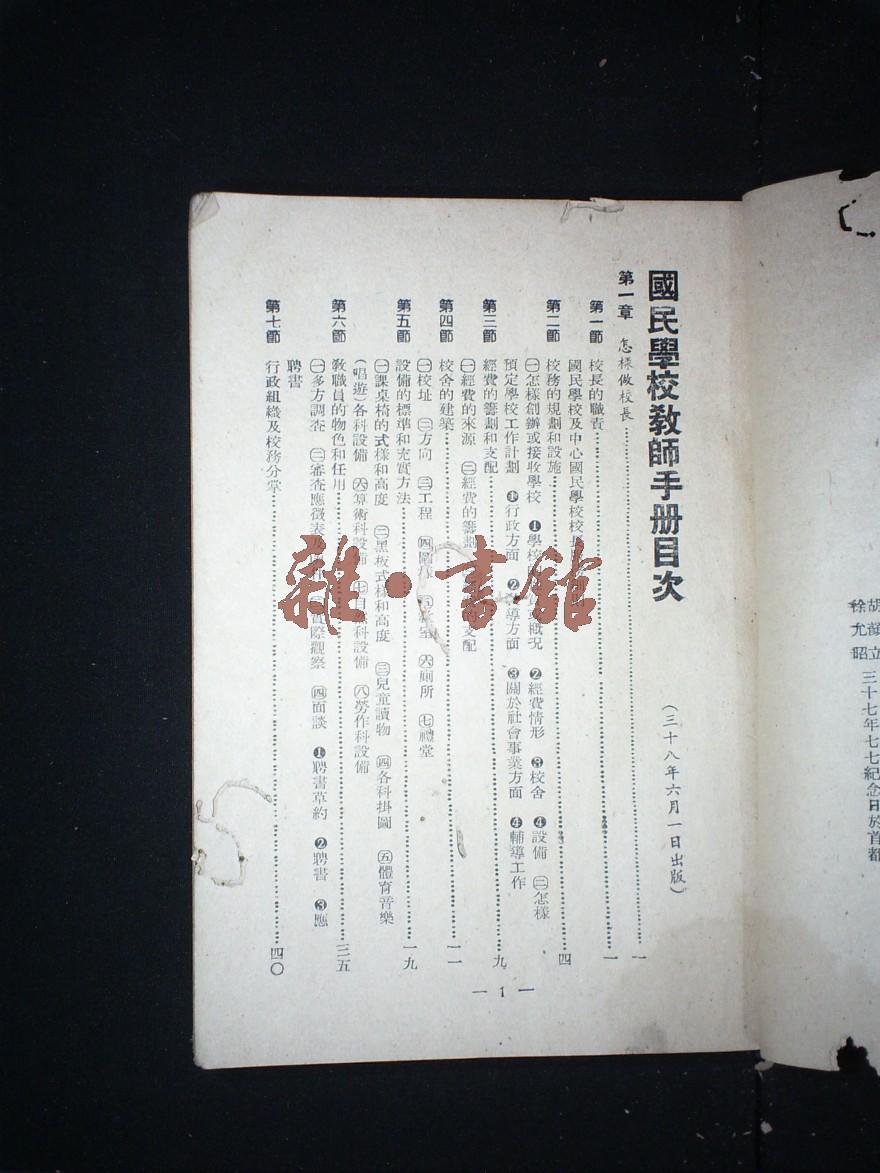 胡顏立
徐允昭 三十七年七七紀念日於首都
國民學校教師手册目次
(三十八年六月一日出版)
第一章 怎樣做校長……一
第一節 校長的職責……一
國民學校及中心國民學校校長
第二節 校務的規劃和設施……四
㊀怎樣創辦或接收學校 ❶學校 概況 ❷經費情形 ❸校舍 ❹設備 ㊁怎樣
預定學校工作計劃 ❶行政方面 ❷教導方面 ❸關於社會事業方面 ❹輔導工作
第三節 經費的籌劃和支配……九
㊀經費的來源 ㊁經費的籌劃 的支配
第四節 校舍的建築……一一
㊀校址 ㊁方向 ㊂工程 ㊃ ㊅廁所 ㊆禮堂
第五節 設備的標準和充實方法……一九
㊀課桌椅的式樣和高度 ㊁黑板式樣和高度 ㊂兒童讀物 ㊃各科掛圖 ㊄體育音樂
(唱遊)各科設備 ㊅算術科設備 ㊆自然科設備 ㊇勞作科設備
第六節 教職員的物色和任用……三五
㊀多方調查 ㊁審查應徵表及 實際觀察 ㊃面談 ❶聘書草約 ❷聘書 ❸應
聘書
第七節 行政組織及校務分掌……四〇
— 1 —
雜·書館